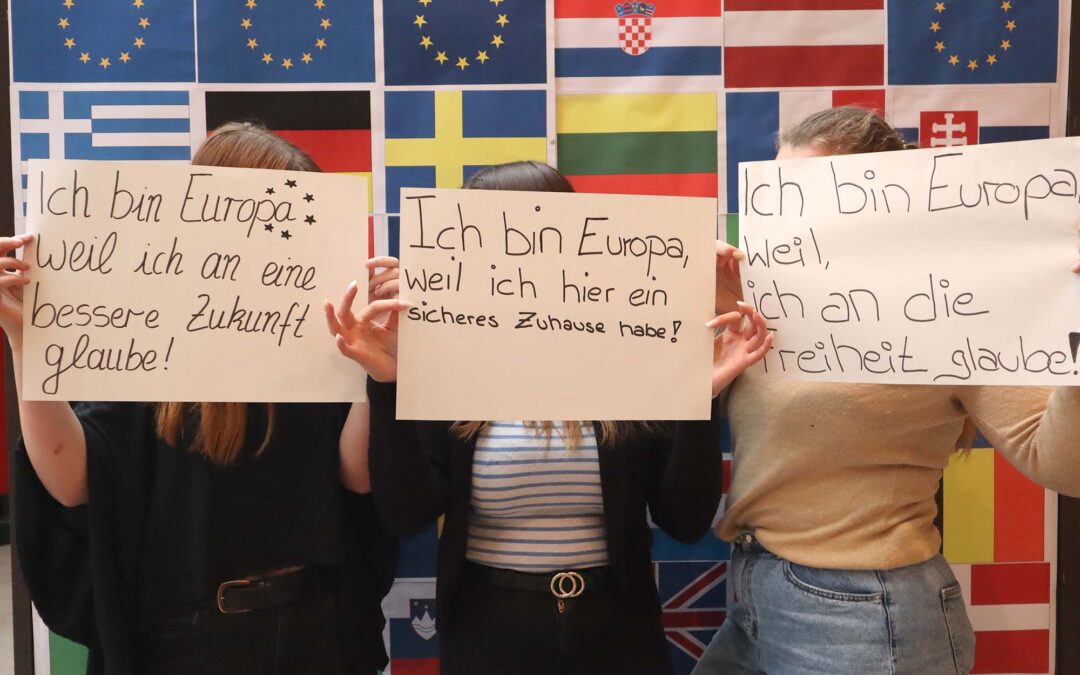 Ich bin Europa
weil ich an eine
bessere Zukunft
glaube!
Ich bin Europa,
weil ich hier ein
sicheres Zuhause habe!
Ich bin Europa,
weil,
ich an die
Freiheit glaube!